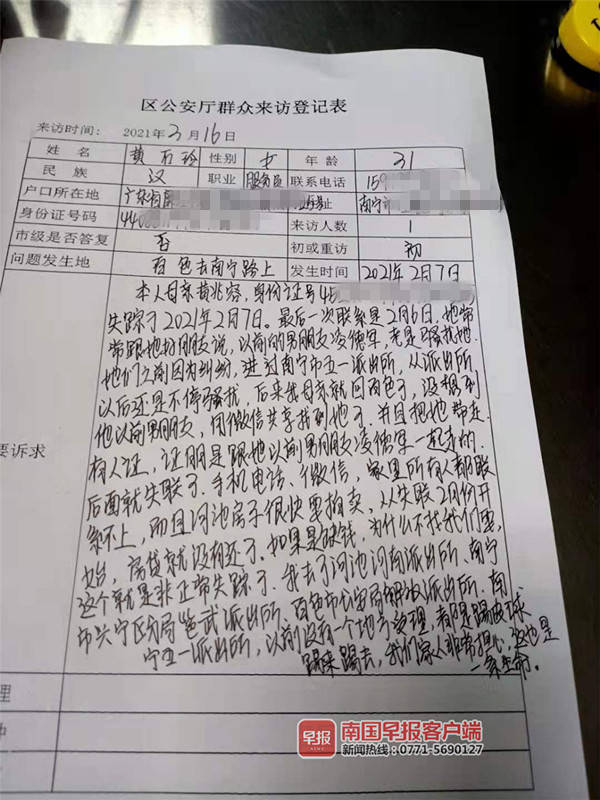 区公安厅群众来访登记表
来访时间: 2021年3月16日
姓名 黄 玲 性别 女 年龄 31
民族 汉 职业 服务员 联系电话 159
户口所在地 广东省 址 南宁市
身份证号码 440 来访人数 1
市级是否答复 否 初或重访 初
问题发生地 百色去南宁路上 发生时间 2021年2月7日
本人母亲黄兆容,身份证号45
失踪于2021年2月7日。最后一次联系是2月6日,她常
常跟她好朋友说,以前的男朋友凌德军,老是骚扰她.
她们之前因为纠纷,进过南宁市五一派出所,从派出所,
以后还是不停骚扰,后来我母亲就回百色了,没想到
他以前男朋友,用微信共享找到她了,并且把她带走
有人证,证明是跟她以前男朋友凌德军一起走的.
要诉求
后面就失联了.手机电话、微信,家里所有人都联
系不上,而且河池房子很快要拍卖,从失联2月份开
始,房贷就没有还了.如果是缺钱,为什么不找我们要,
这个就是非正常失踪了.我去了河池河南派出所、南宁
市兴宁区分局 武派出所、百色市公安局解放派出所.南
宁五一派出所,以前没有一个地方受理,都是踢皮球
踢来踢去,我们家人非常担心,这也是
一条生命.
理
早报
南国早报客户端
新闻热线:0771-5690127